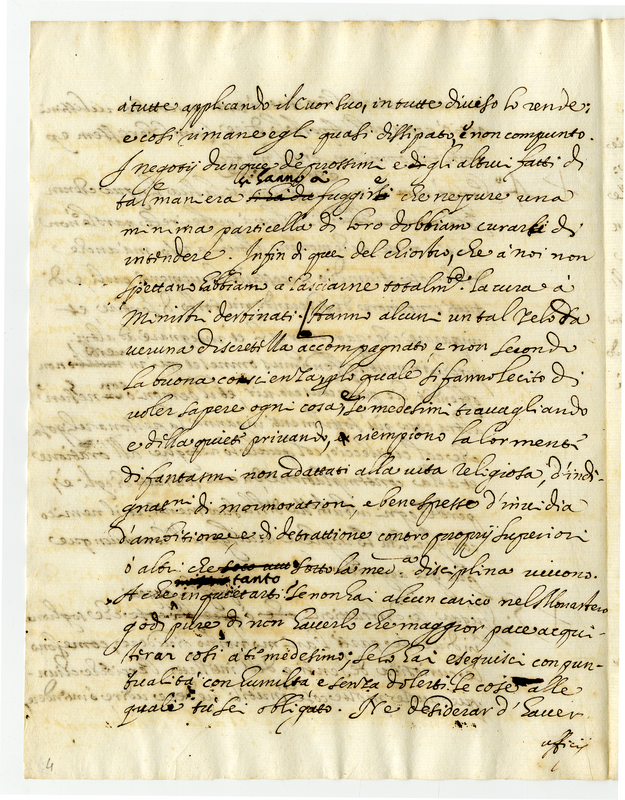 à tutte applicando il Cuor suo, in tutte diviso lo rende;
e cosi rimane egli quasi dissipato, e non compunto.
I negotij dunque de prossimi e degli altrui fatti di
si hanno à
tal maniera si hà da fuggirli che ne pure una
minima particella di loro dobbiam curarci di
intendere. Infin di quei del chiostro, che à noi non
spettano habbiam à lasciarne totalm.te la cura à
Ministri destinati. Hanno alcuni un tal zelo da
veruna discretella accompagnato, e non secondo
la buona conscienza, p lo quale si fanno lecito di
voler sapere ogni cosa, e se medesimi travagliando
e della quiete privando, riempiono la lor mente
di fantasmi non adattati alla vita religiosa, d'indi-
gnationi, di mormorationi, e bene spesso d'invidia
d'ambitione, e di detrattione contro proprij Superiori
ò altri che sotto la med.a disciplina vivono.
tanto
A che inquietarti? Se non hai alcun carico nel Monastero
godi pure di non haverlo che maggior pace acqui-
sterai cosi à te medesimo; se lo hai eseguisci con pun-
tualità con humiltà e senza dolerti le cose alle
quale tu sei obligato. Ne desiderar d'haver
ufficij
4